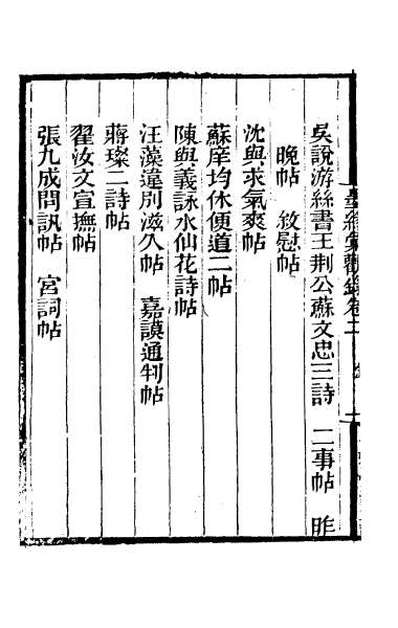 吳說游絲書王荆公蘇文忠三詩　二事帖　昨
晚帖　敘慰帖
沈與求氣爽帖
蘇庠均休便道二帖
陳與義詠水仙花詩帖
汪藻違別滋久帖　嘉謨通判帖
蔣璨二詩帖
翟汝文宣撫帖
張九成問訊帖　宮詞帖